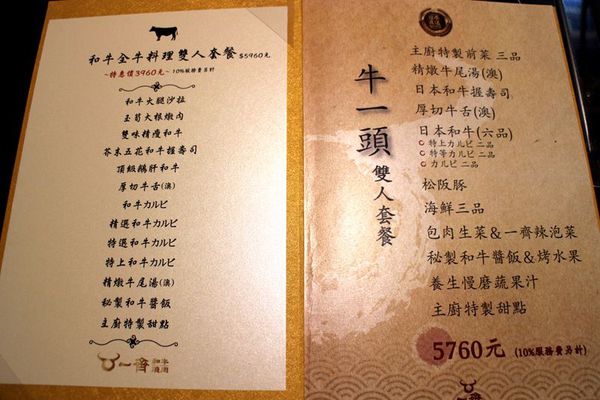 和牛全牛料理雙人套餐 $5960元
~特惠價3960元~ 10%服務費另計
和牛火腿沙拉
玉筍大根燉肉
雙味精瘦和牛
芥末五花和牛握壽司
頂級鵝肝和牛
厚切牛舌(澳)
和牛カルビ
精選和牛カルビ
特選和牛カルビ
特上和牛カルビ
精燉牛尾湯(澳)
秘製和牛醬飯
主廚特製甜點
一齊 和牛燒肉
牛一頭 雙人套餐
主廚特製前菜 三品
精燉牛尾湯(澳)
日本和牛握壽司
厚切牛舌(澳)
日本和牛(六品)
特上カルビ 二品
特等カルビ 二品
カルビ 二品
松阪豚
海鮮三品
包肉生菜&一齊辣泡菜
秘製和牛醬飯&烤水果
養生慢磨蔬果汁
主廚特製甜點
5760元 (10%服務費另計)